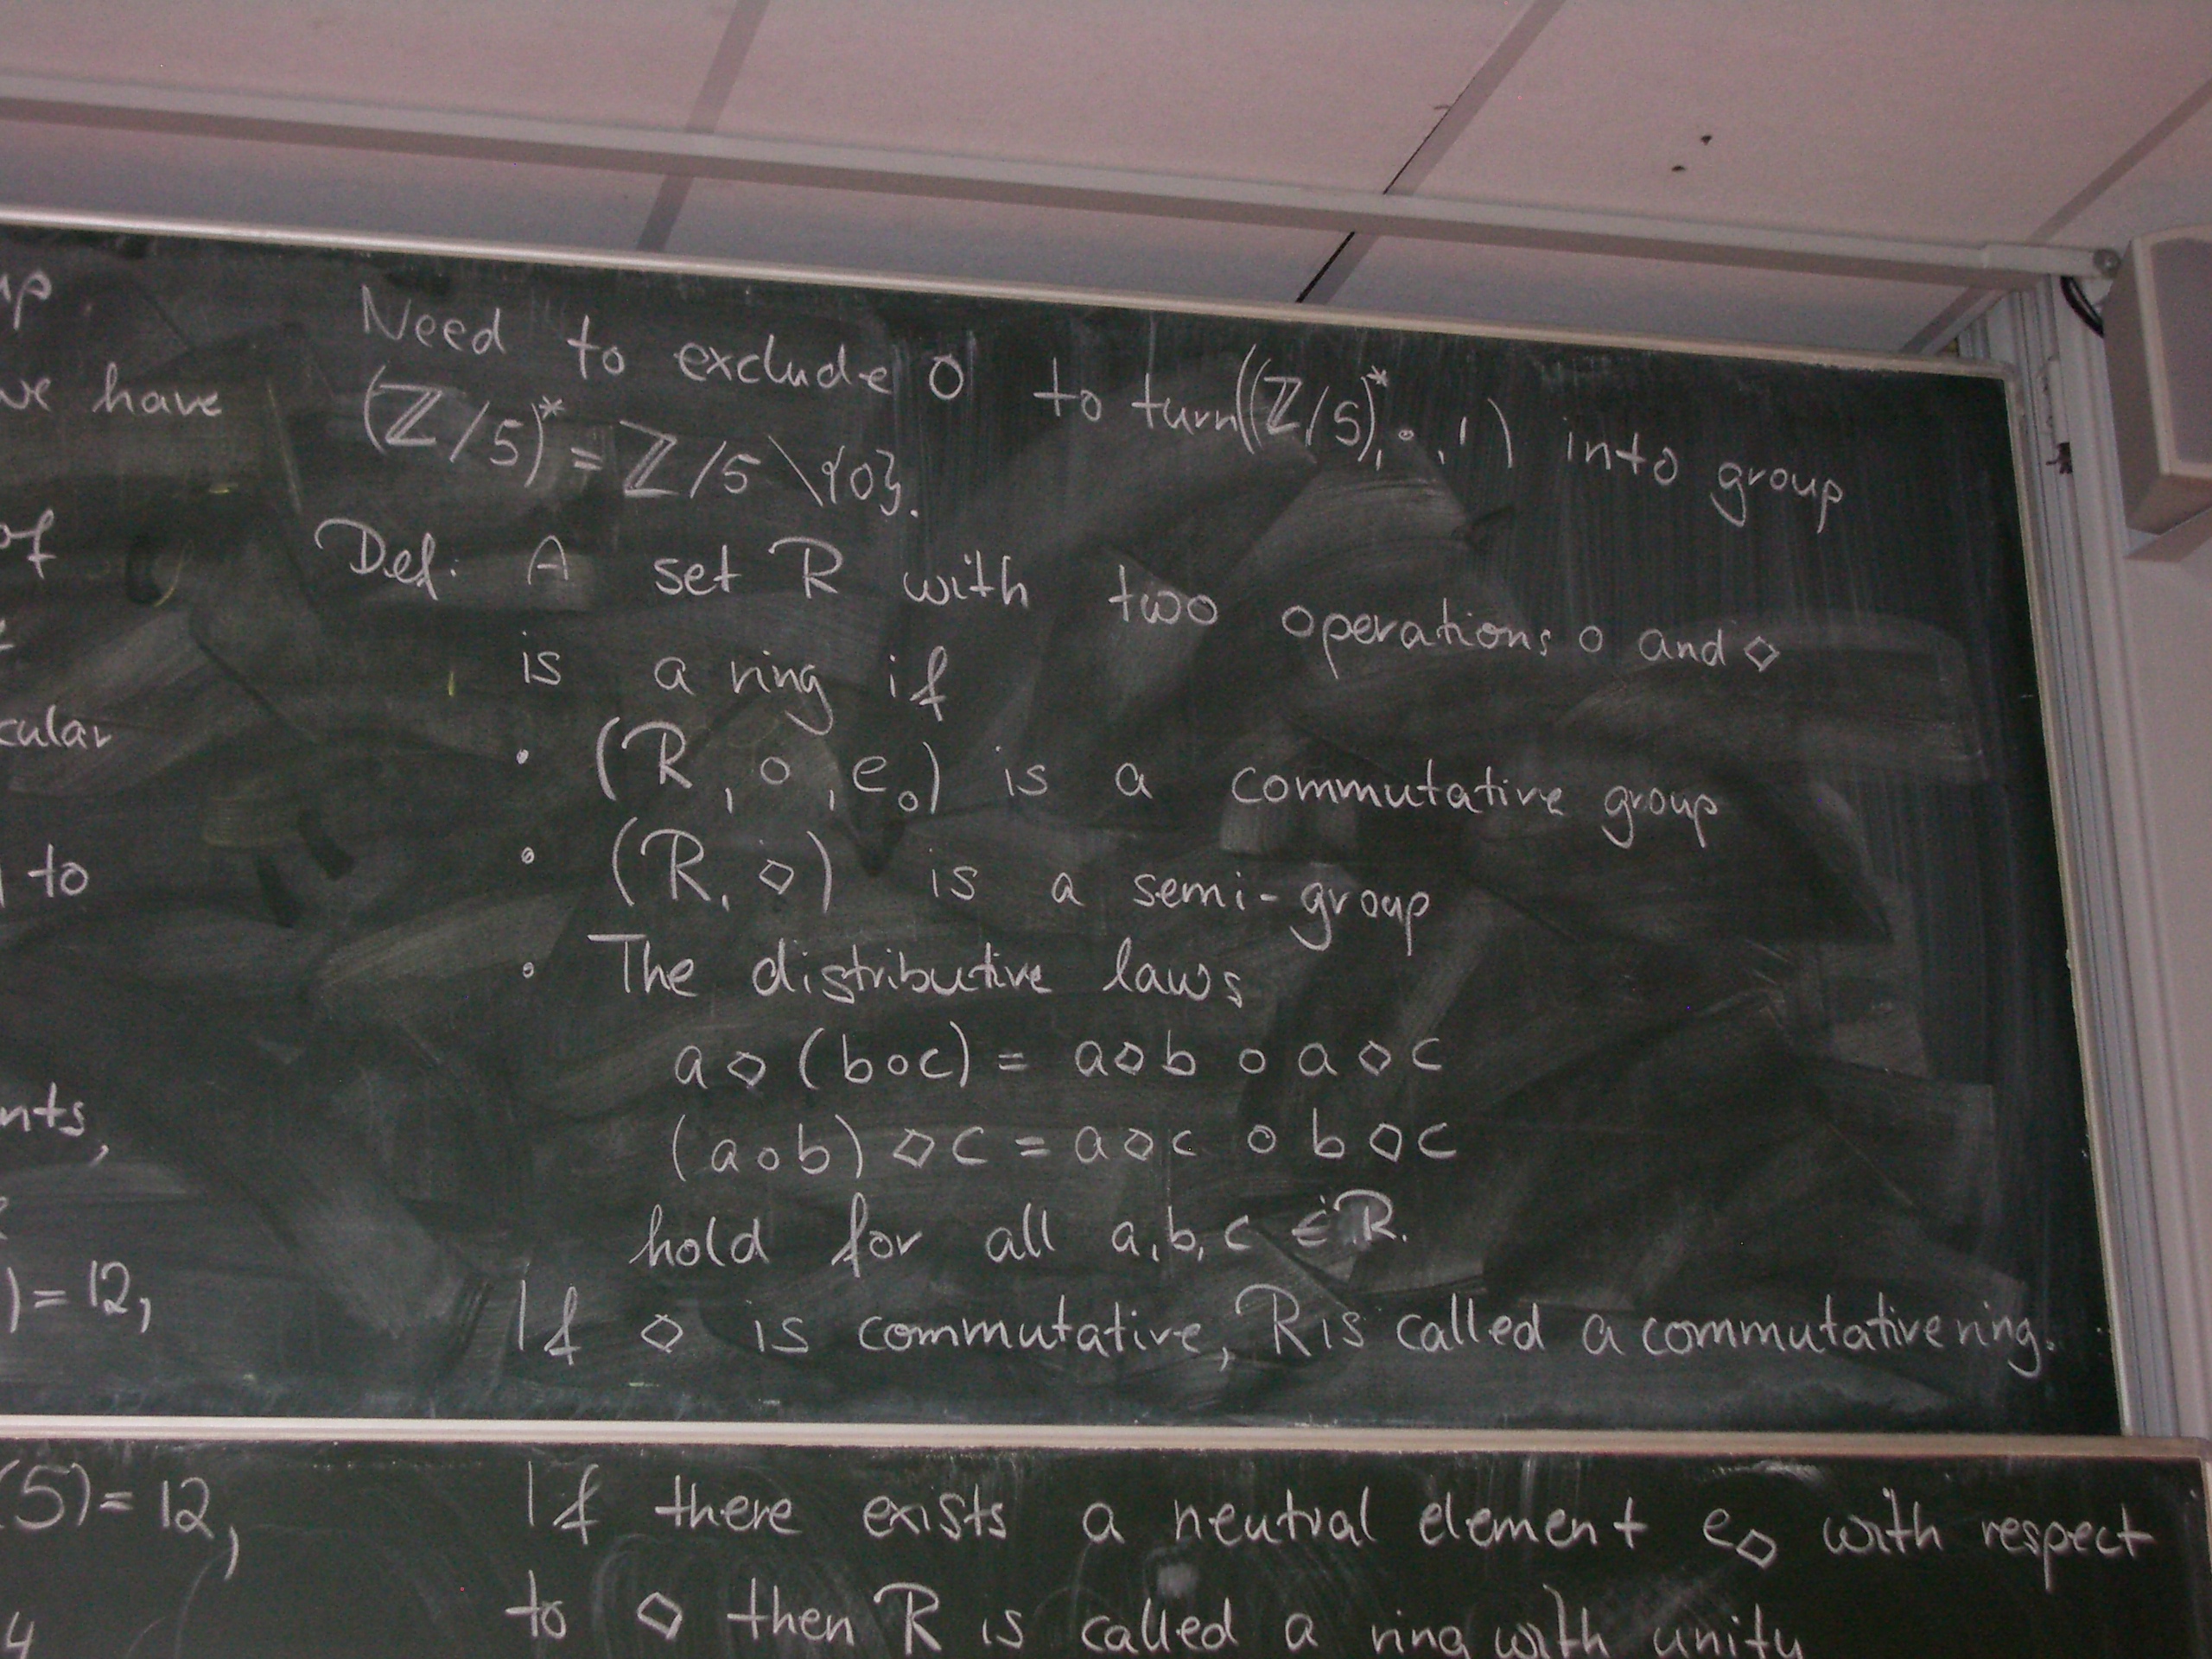 up.
we have
of
cular
to
nts,
) = 12,
(5) = 12,
4
Need to exclude 0 to turn ((ℤ/5)*, ∘, 1) into group
(ℤ/5)* = ℤ/5 \ {0}.
Def: A set R with two operations ∘ and ◇
is a ring if
• (R, ∘, e∘) is a commutative group
• (R, ◇) is a semi-group
• The distributive laws
a ◇ (b∘c) = a◇b ∘ a◇c
(a∘b) ◇ c = a◇c ∘ b◇c
hold for all a, b, c ∈ R.
If ◇ is commutative, R is called a commutative ring.
If there exists a neutral element e◇ with respect
to ◇ then R is called a ring with unity